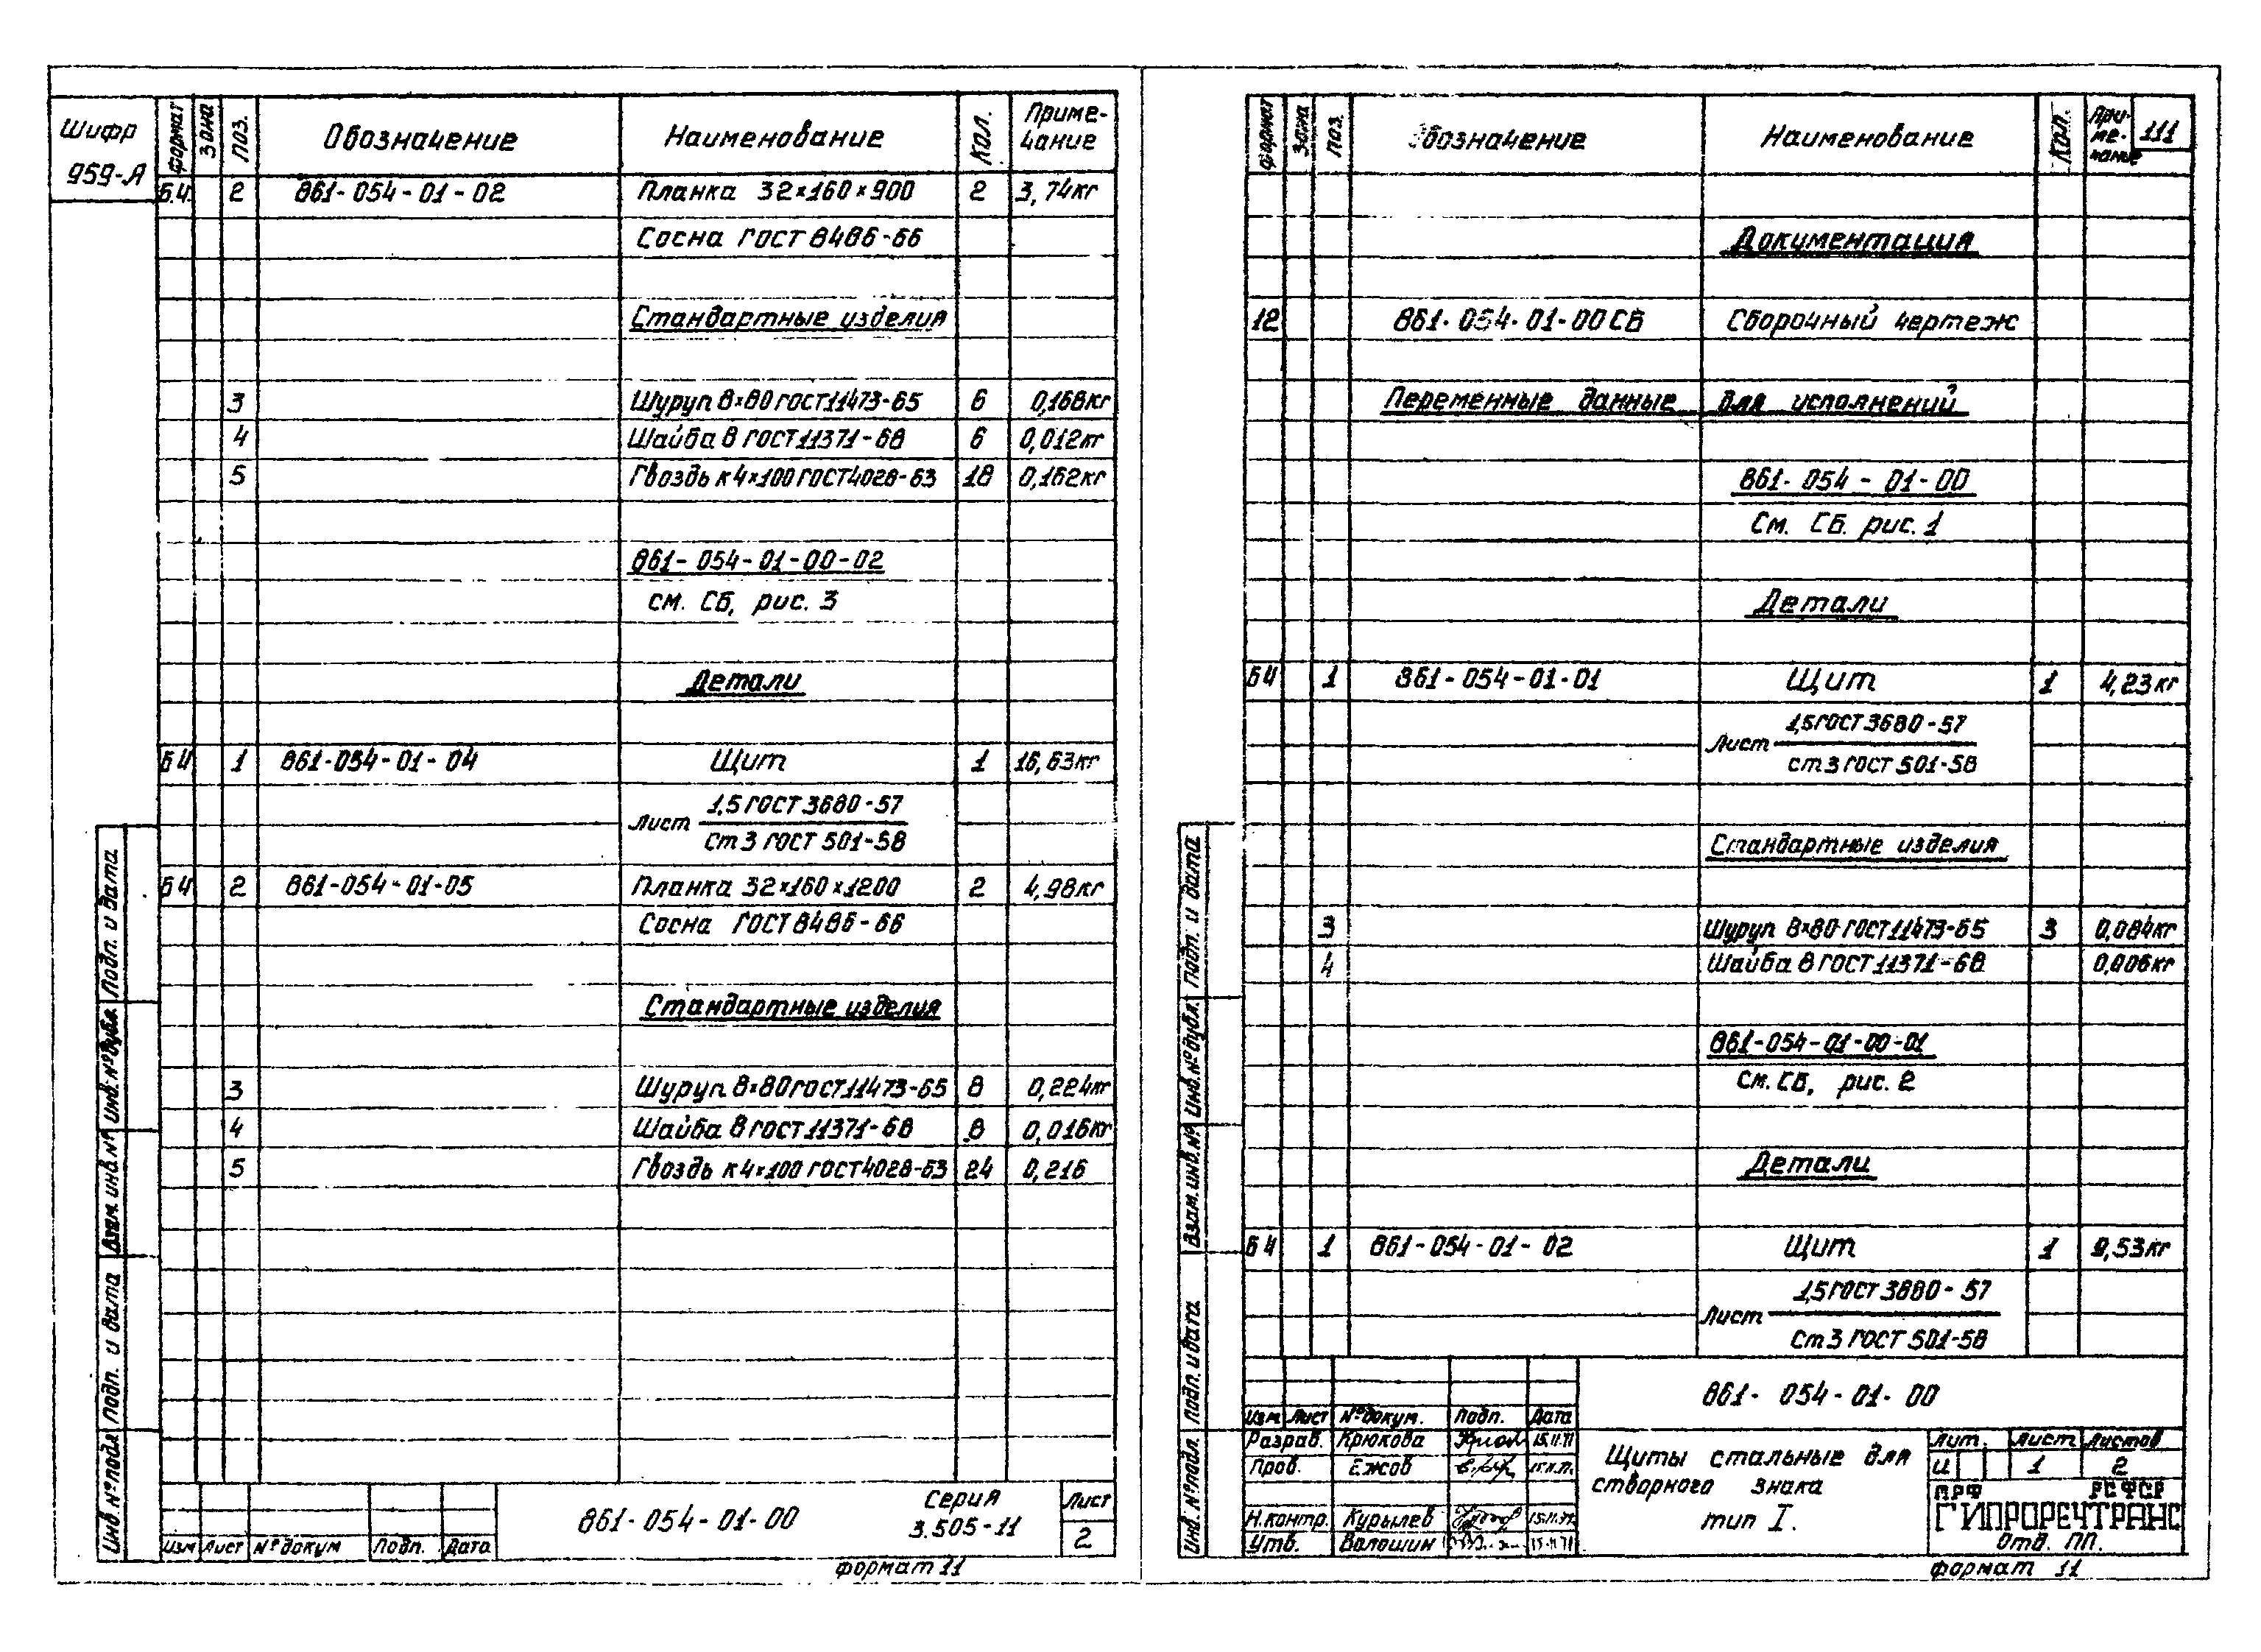 Шифр
959-А
формат Зона поз. Обозначение Наименование Кол. Приме-
чание
Б.Ч. 2 861-054-01-02 Планка 32×160×900 2 3,74кг
Сосна ГОСТ 8486-66
Стандартные изделия
3 Шуруп 8×80 ГОСТ 11473-65 6 0,168кг
4 Шайба 8 ГОСТ 11371-68 6 0,012кг
5 Гвоздь к 4×100 ГОСТ 4028-63 18 0,162кг
861-054-01-00-02
см. СБ, рис. 3
Детали
БЧ 1 861-054-01-04 Щит 1 16,63кг
Лист 1,5 ГОСТ 3680-57
Ст 3 ГОСТ 501-58
БЧ 2 861-054-01-05 Планка 32×160×1200 2 4,98кг
Сосна ГОСТ 8486-66
Стандартные изделия
3 Шуруп 8×80 ГОСТ 11473-65 8 0,224кг
4 Шайба 8 ГОСТ 11371-68 8 0,016кг
5 Гвоздь к 4×100 ГОСТ 4028-63 24 0,216
Инв. № подл. Подп. и дата Взам. инв. № Инв. № дубл. Подп. и дата
Изм Лист № докум Подп. Дата
861-054-01-00
Серия
3.505-11
Лист
2
формат 11
формат Зона поз. Обозначение Наименование Кол. При-
ме-
чание
111
Документация
12 861-054-01-00 СБ Сборочный чертеж
Переменные данные для исполнений
861-054-01-00
См. СБ. рис. 1
Детали
БЧ 1 861-054-01-01 Щит 1 4,23кг
Лист 1,5 ГОСТ 3680-57
ст 3 ГОСТ 501-58
Стандартные изделия
3 Шуруп 8×80 ГОСТ 11473-65 3 0,084кг
4 Шайба 8 ГОСТ 11371-68 0,006кг
861-054-01-00-01
См. СБ, рис. 2
Детали
БЧ 1 861-054-01-02 Щит 1 9,53кг
Лист 1,5 ГОСТ 3680-57
Ст 3 ГОСТ 501-58
Инв. № подл. Подп. и дата Взам. инв. № Инв. № дубл. Подп. и дата
861-054-01-00
Изм Лист № докум. Подп. Дата
Разраб. Крюкова 15.11.71
Пров. Ежсов 15.11.71
Н.контр. Курылев 15.11.71
Утв. Волошин 15.11.71
Щиты стальные для
створного знака
тип I.
Лит. Лист Листов
И 1 2
МРФ РСФСР
ГИПРОРЕЧТРАНС
Отд. ПП.
формат 11